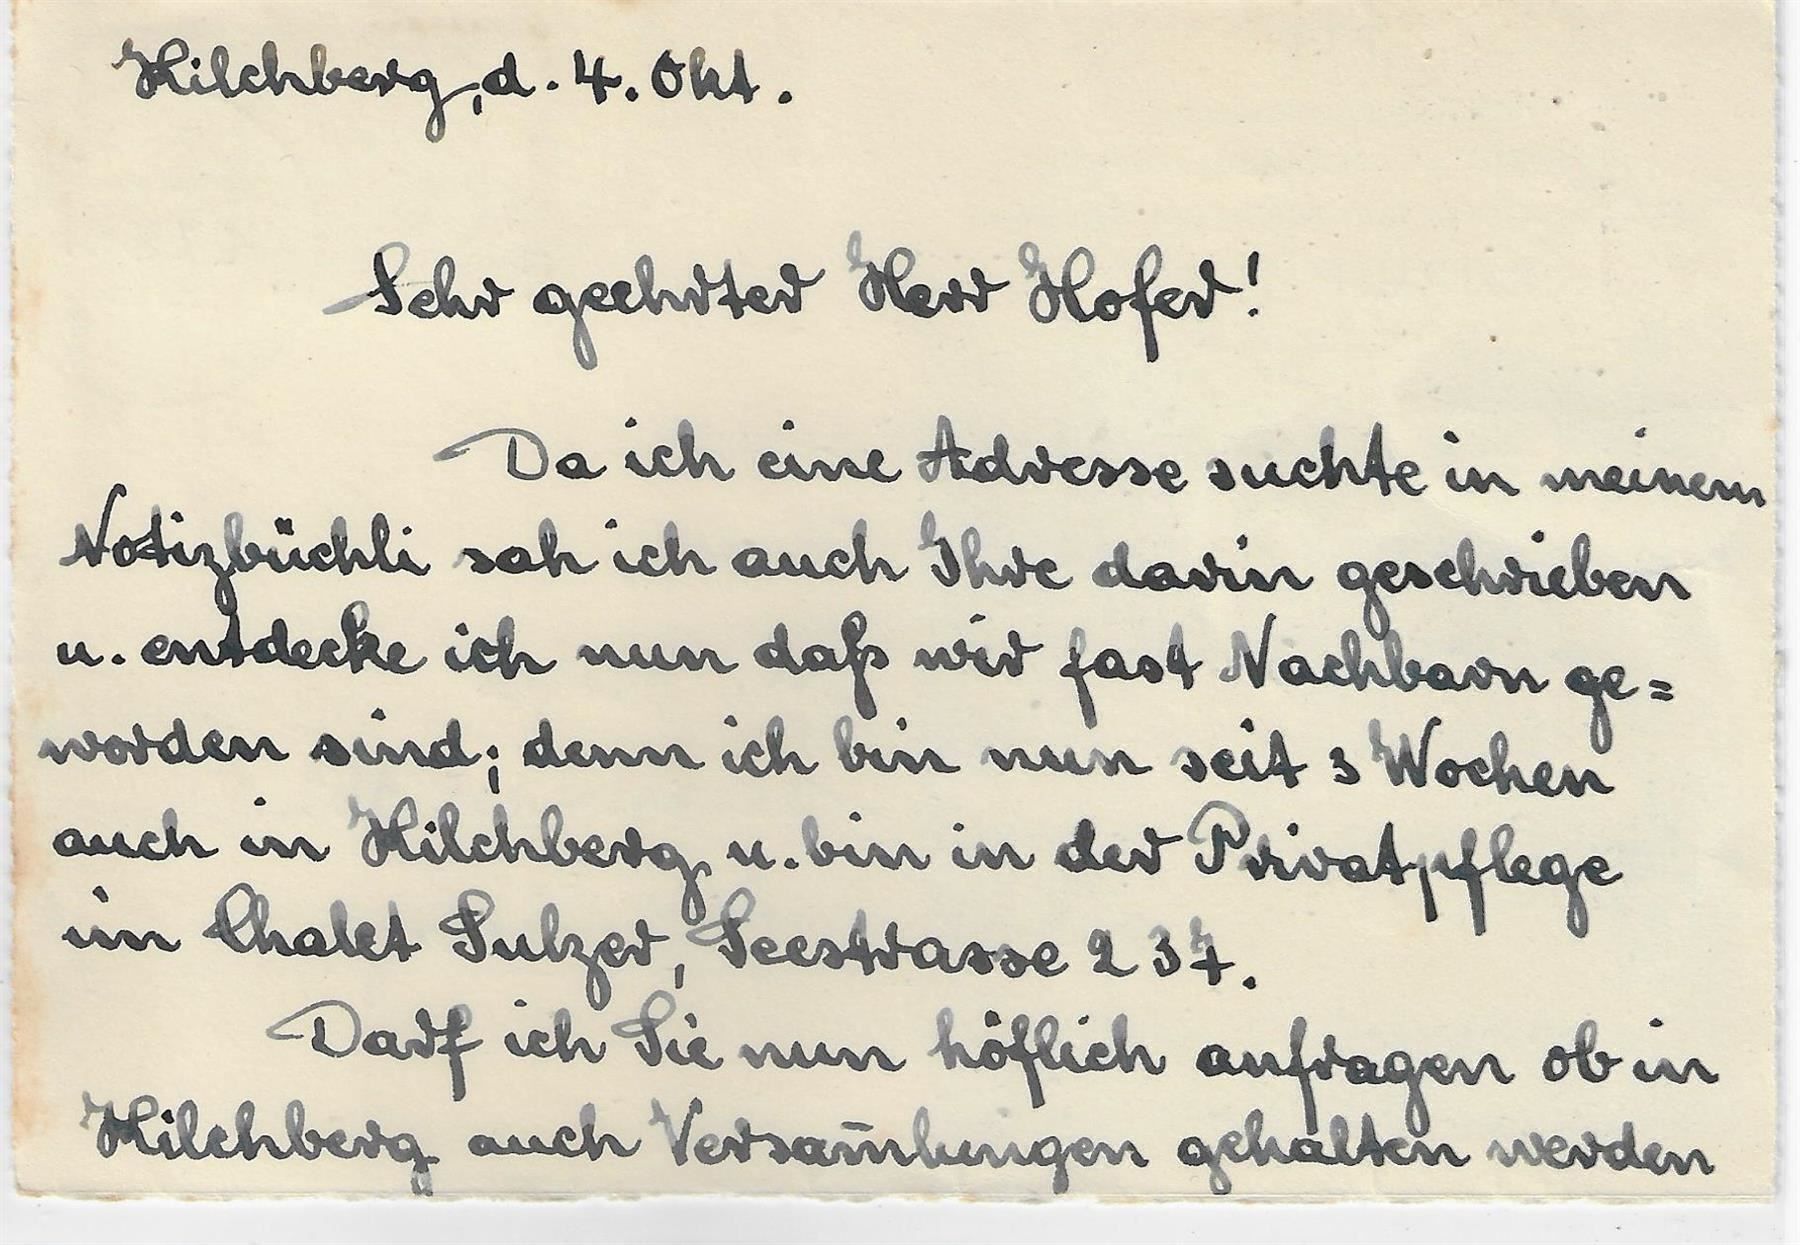 Kilchberg, d. 4. Okt.
Sehr geehrter Herr Hofer!
Da ich eine Adresse suchte in meinem
Notizbüchli sah ich auch Ihre darin geschrieben
u. entdecke ich nun daß wir fast Nachbarn ge=
worden sind; denn ich bin nun seit 3 Wochen
auch in Kilchberg u. bin in der Privatpflege
im Chalet Sulzer, Seestrasse 237.
Darf ich Sie nun höflich anfragen ob in
Kilchberg auch Versam̅lungen gehalten werden